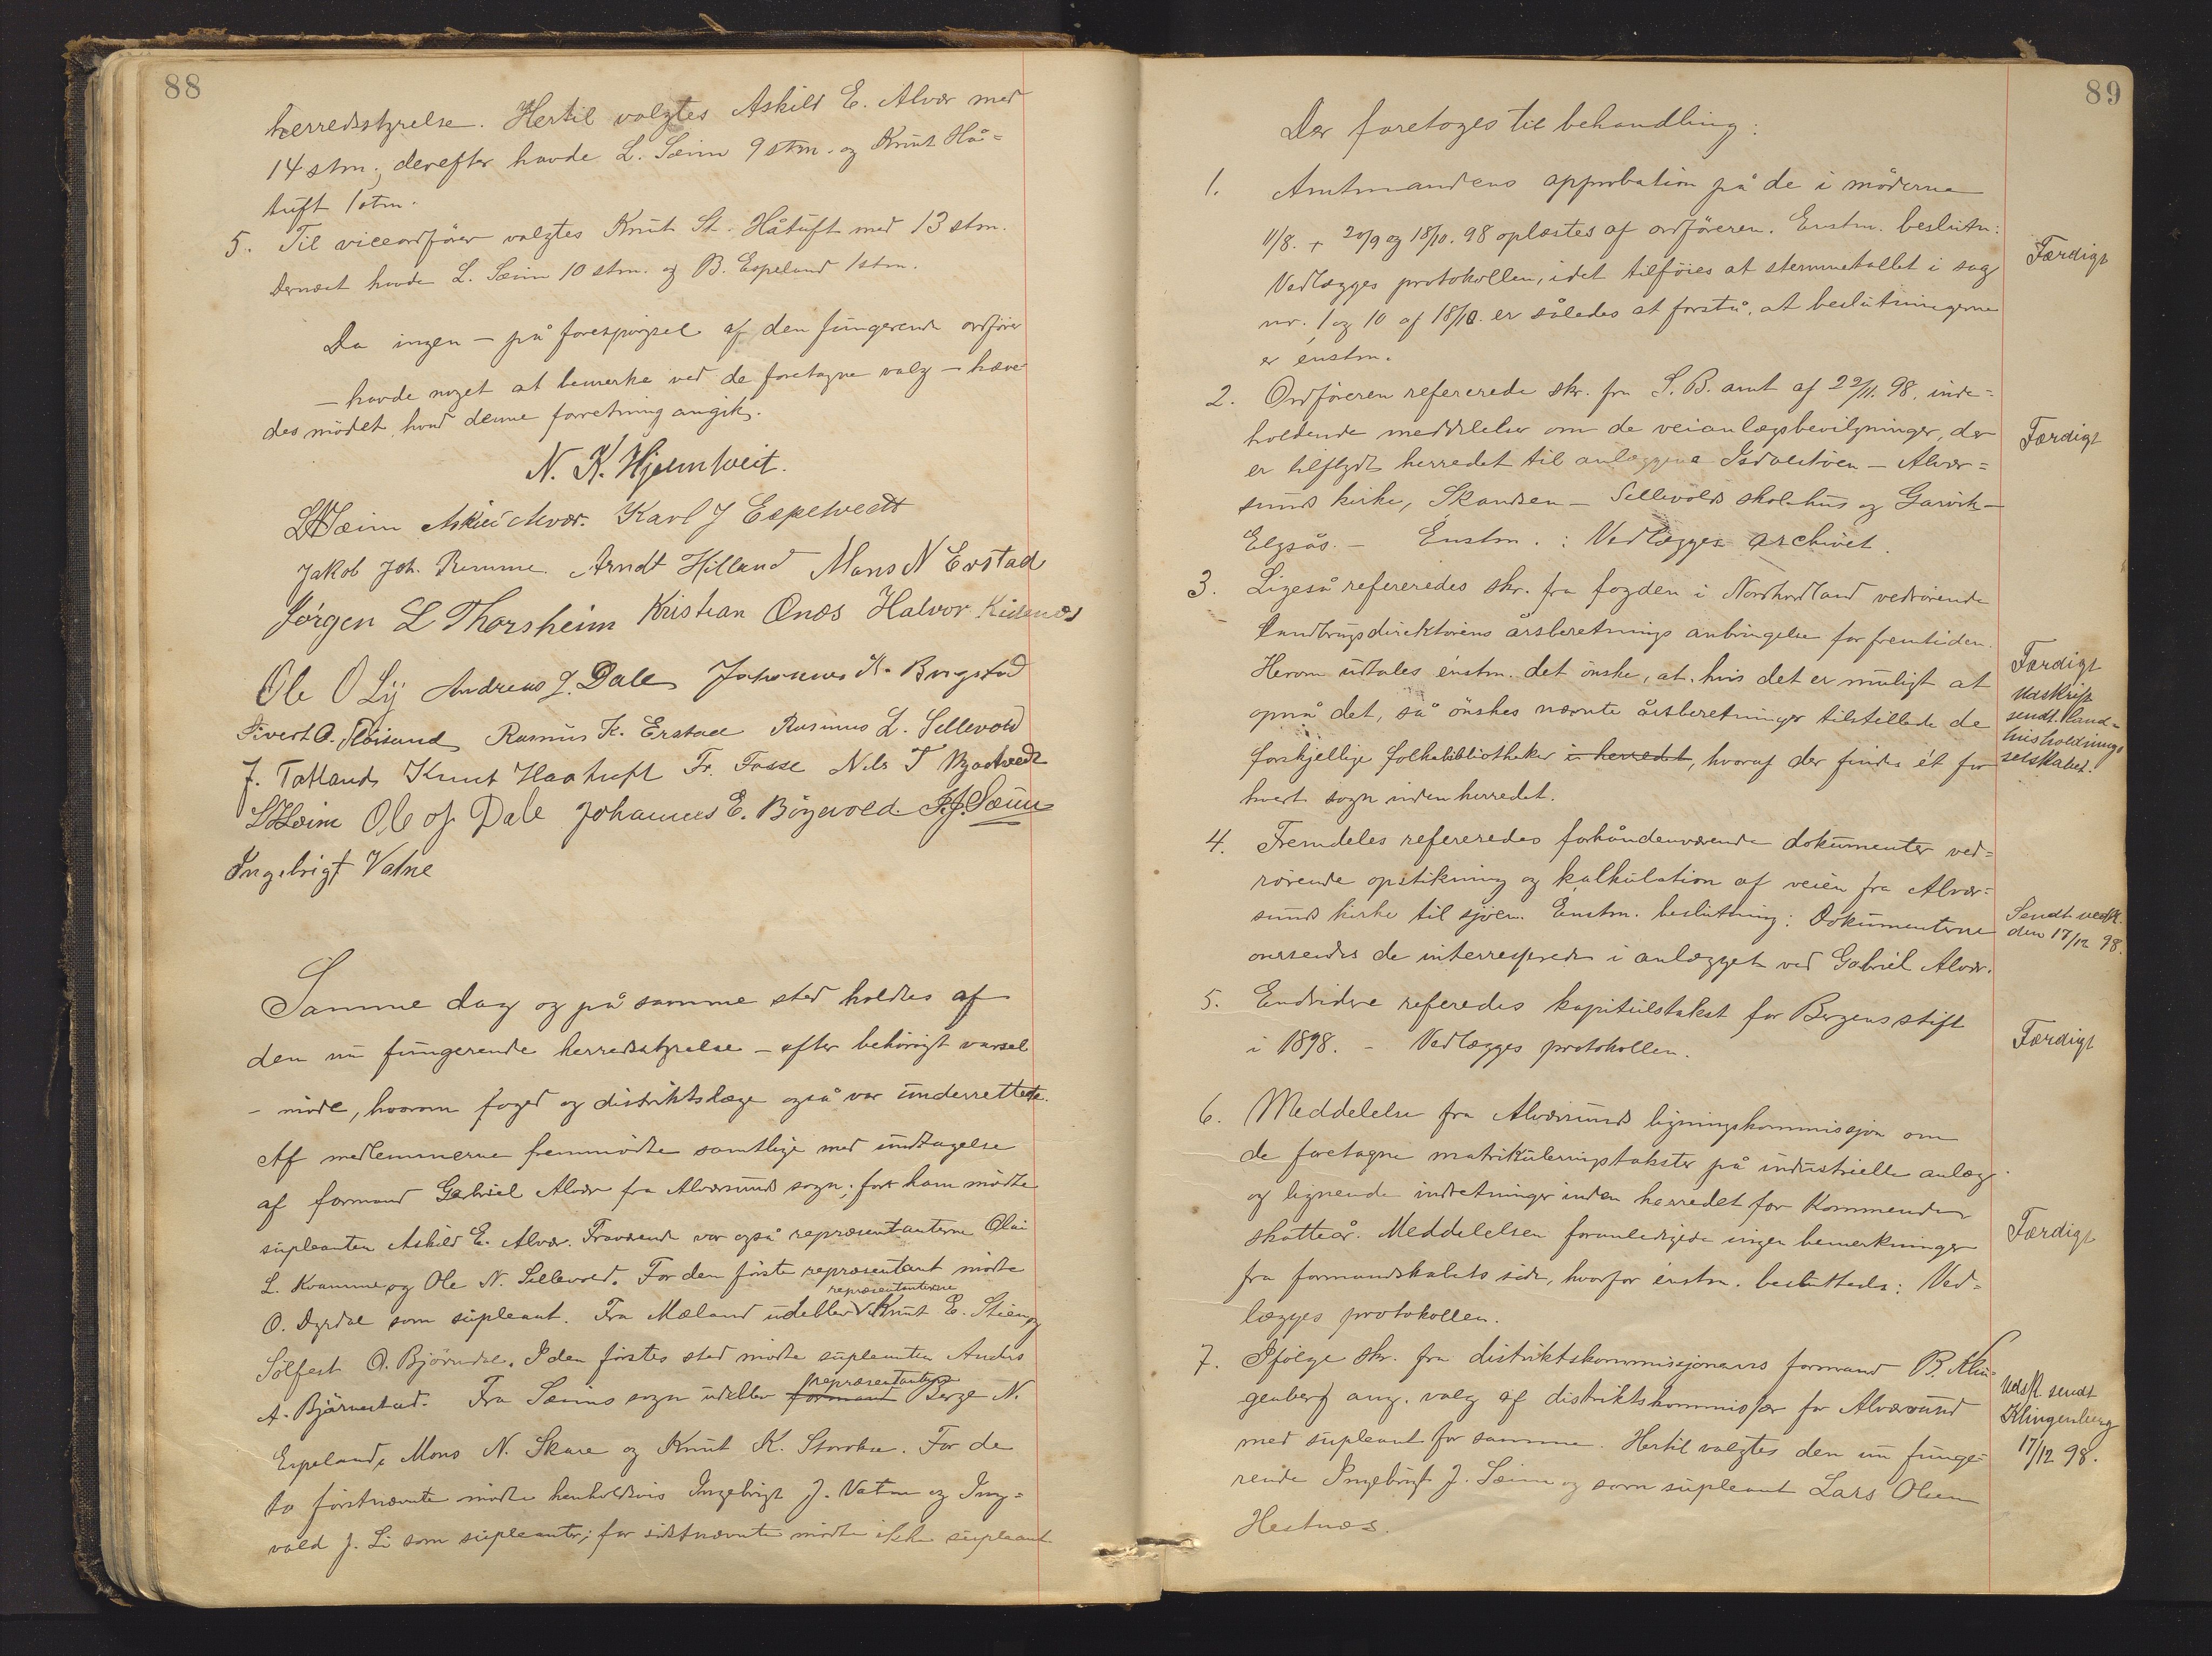 88
herredsstyrelse. Hertil valgtes Askild E. Alvær med
14 stm.; derefter havde L. Sæim 9 stm. og Knut Hå=
tuft 1 stm.
5. Til viceordfører valgtes Knut St. Håtuft med 13 stm.
Dernæst havde L. Sæim 10 stm. og B. Espeland 1 stm.
Da ingen – på forespørgsel af den fungerende ordfører
– havde noget at bemærke ved de foretagne valg – hæve-
des mødet, hvad denne forretning angik.
N. K. Hjelmtveit.
L Sæim Askild Alvær. Karl J Espetvedt
Jakob Joh. Remme. Arndt Hilland Mons N Erstad
Jørgen L Thorsheim Kristian Onæs Halvor
Ole O Lij Andreas J. Dale Johannes K. Brugstad
Sivert O. Rasmus K. Erstad Rasmus L. Sellevold
J. Tofland Knut Haatuft Fr. Fosse Nils T
L Sæim Ole O J. Dale Johannes E. Bøgevold I. J. Sæim
Ingebrigt Vatne
Samme dag og på samme sted holdtes af
den nu fungerende herredsstyrelse – efter behørigt varsel
– møde, hvorom foged og distriktslæge også var underrettede.
Af medlemmerne fremmødte samtlige med undtagelse
af formand Gabriel Alvær fra Alværsunds sogn; for ham mødte
supleanten Askild E. Alvær. Fraværende var også repræsentanterne Olai
L. Kvamme og Ole N. Sellevold. For den første repræsentant mødte
repræsentanterne
O. Dyrdal som supleant. Fra Mæland udeblev Knut E. Stien og
Sølfest O. Bjørndal. I den førstes sted mødte supleanten Anders
repræsentanterne
A. Bjørnestad. Fra Sæims sogn udeblev formand Berge N.
Espeland, Mons N. Skare og Knut K. Storoksen. For de
to førstnævnte mødte henholdsvis Ingebrigt J. Vatne og Ing=
vald J. Li som supleanter; for sidstnævnte mødte ikke supleant
89
Der foretoges til behandling:
1. Amtmandens approbation på de i møderne
11/8. + 20/9 og 18/10. 98 oplæstes af ordføreren. Enstm. beslutn.:
Vedlægges protokollen, idet tilføies at stemmetallet i sag
nr. 1 og 10 af 18/10. er således at forstå, at beslutningerne
er énstm.
Færdigt
2. Ordføreren refererede skr. fra S. B. amt af 22/11. 98, inde=
holdende meddelelse om de veianlægsbevilgninger, der
er tilflydt herredet til anlæggene Isdalstøen – Alvær=
sunds kirke, Skandsen – Sellevolds skolehus og Garvik –
Elgsås. – Énstm.: Vedlægges archivet.
Færdigt
3. Ligeså refereredes skr. fra fogden i Nordhordland vedrørende
landbrugsdirektørens årsberetnings anbringelse for fremtiden.
Herom udtales énstm. det ønske, at hvis det er muligt at
opnå det, så ønskes nævnte årsberetninger tilstillede de
forskjellige folkebibliotheker i herredet, hvoraf der findes ét for
hvert sogn inden herredet.
Færdigt
Udskrift
sendt. land-
husholdnings
selskabet.
4. Fremdeles refereredes forhåndenværende dokumenter ved=
rørende opstikning og kalkulation af veien fra Alvær=
sunds kirke til sjøen. Énstm. beslutning: Dokumenterne
oversendes de interreserede i anlægget ved Gabriel Alvær.
Sendt vedk.
den 17/12 98.
5. Endvidere referedes kapitulstakst for Bergens stift
i 1898. – Vedlægges protokollen.
Færdigt
6. Meddelelse fra Alværsunds ligningskommissjon om
de foretagne matrikuleringstakster på industrielle anlæg
og lignende indretninger inden herredet for kommende
skatteår. Meddelelsen foranledigede ingen bemerkninger
fra formandskabets side, hvorfor énstm. besluttedes: Ved=
lægges protokollen.
Færdigt
7. Ifølge skr. fra distriktskommissjonens formand B. Klin-
genberg ang. valg af distriktskommissær for Alværsund
med supleant for samme. Hertil valgtes den nu funge=
rende Ingebrigt J. Sæim og som supleant Lars Olsen
Hestnæs.
Udsk. sendt
Klingenberg
17/12 98.